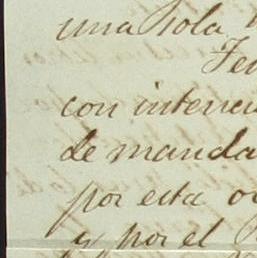 una sola
con interven
de manda
por esta
y por el